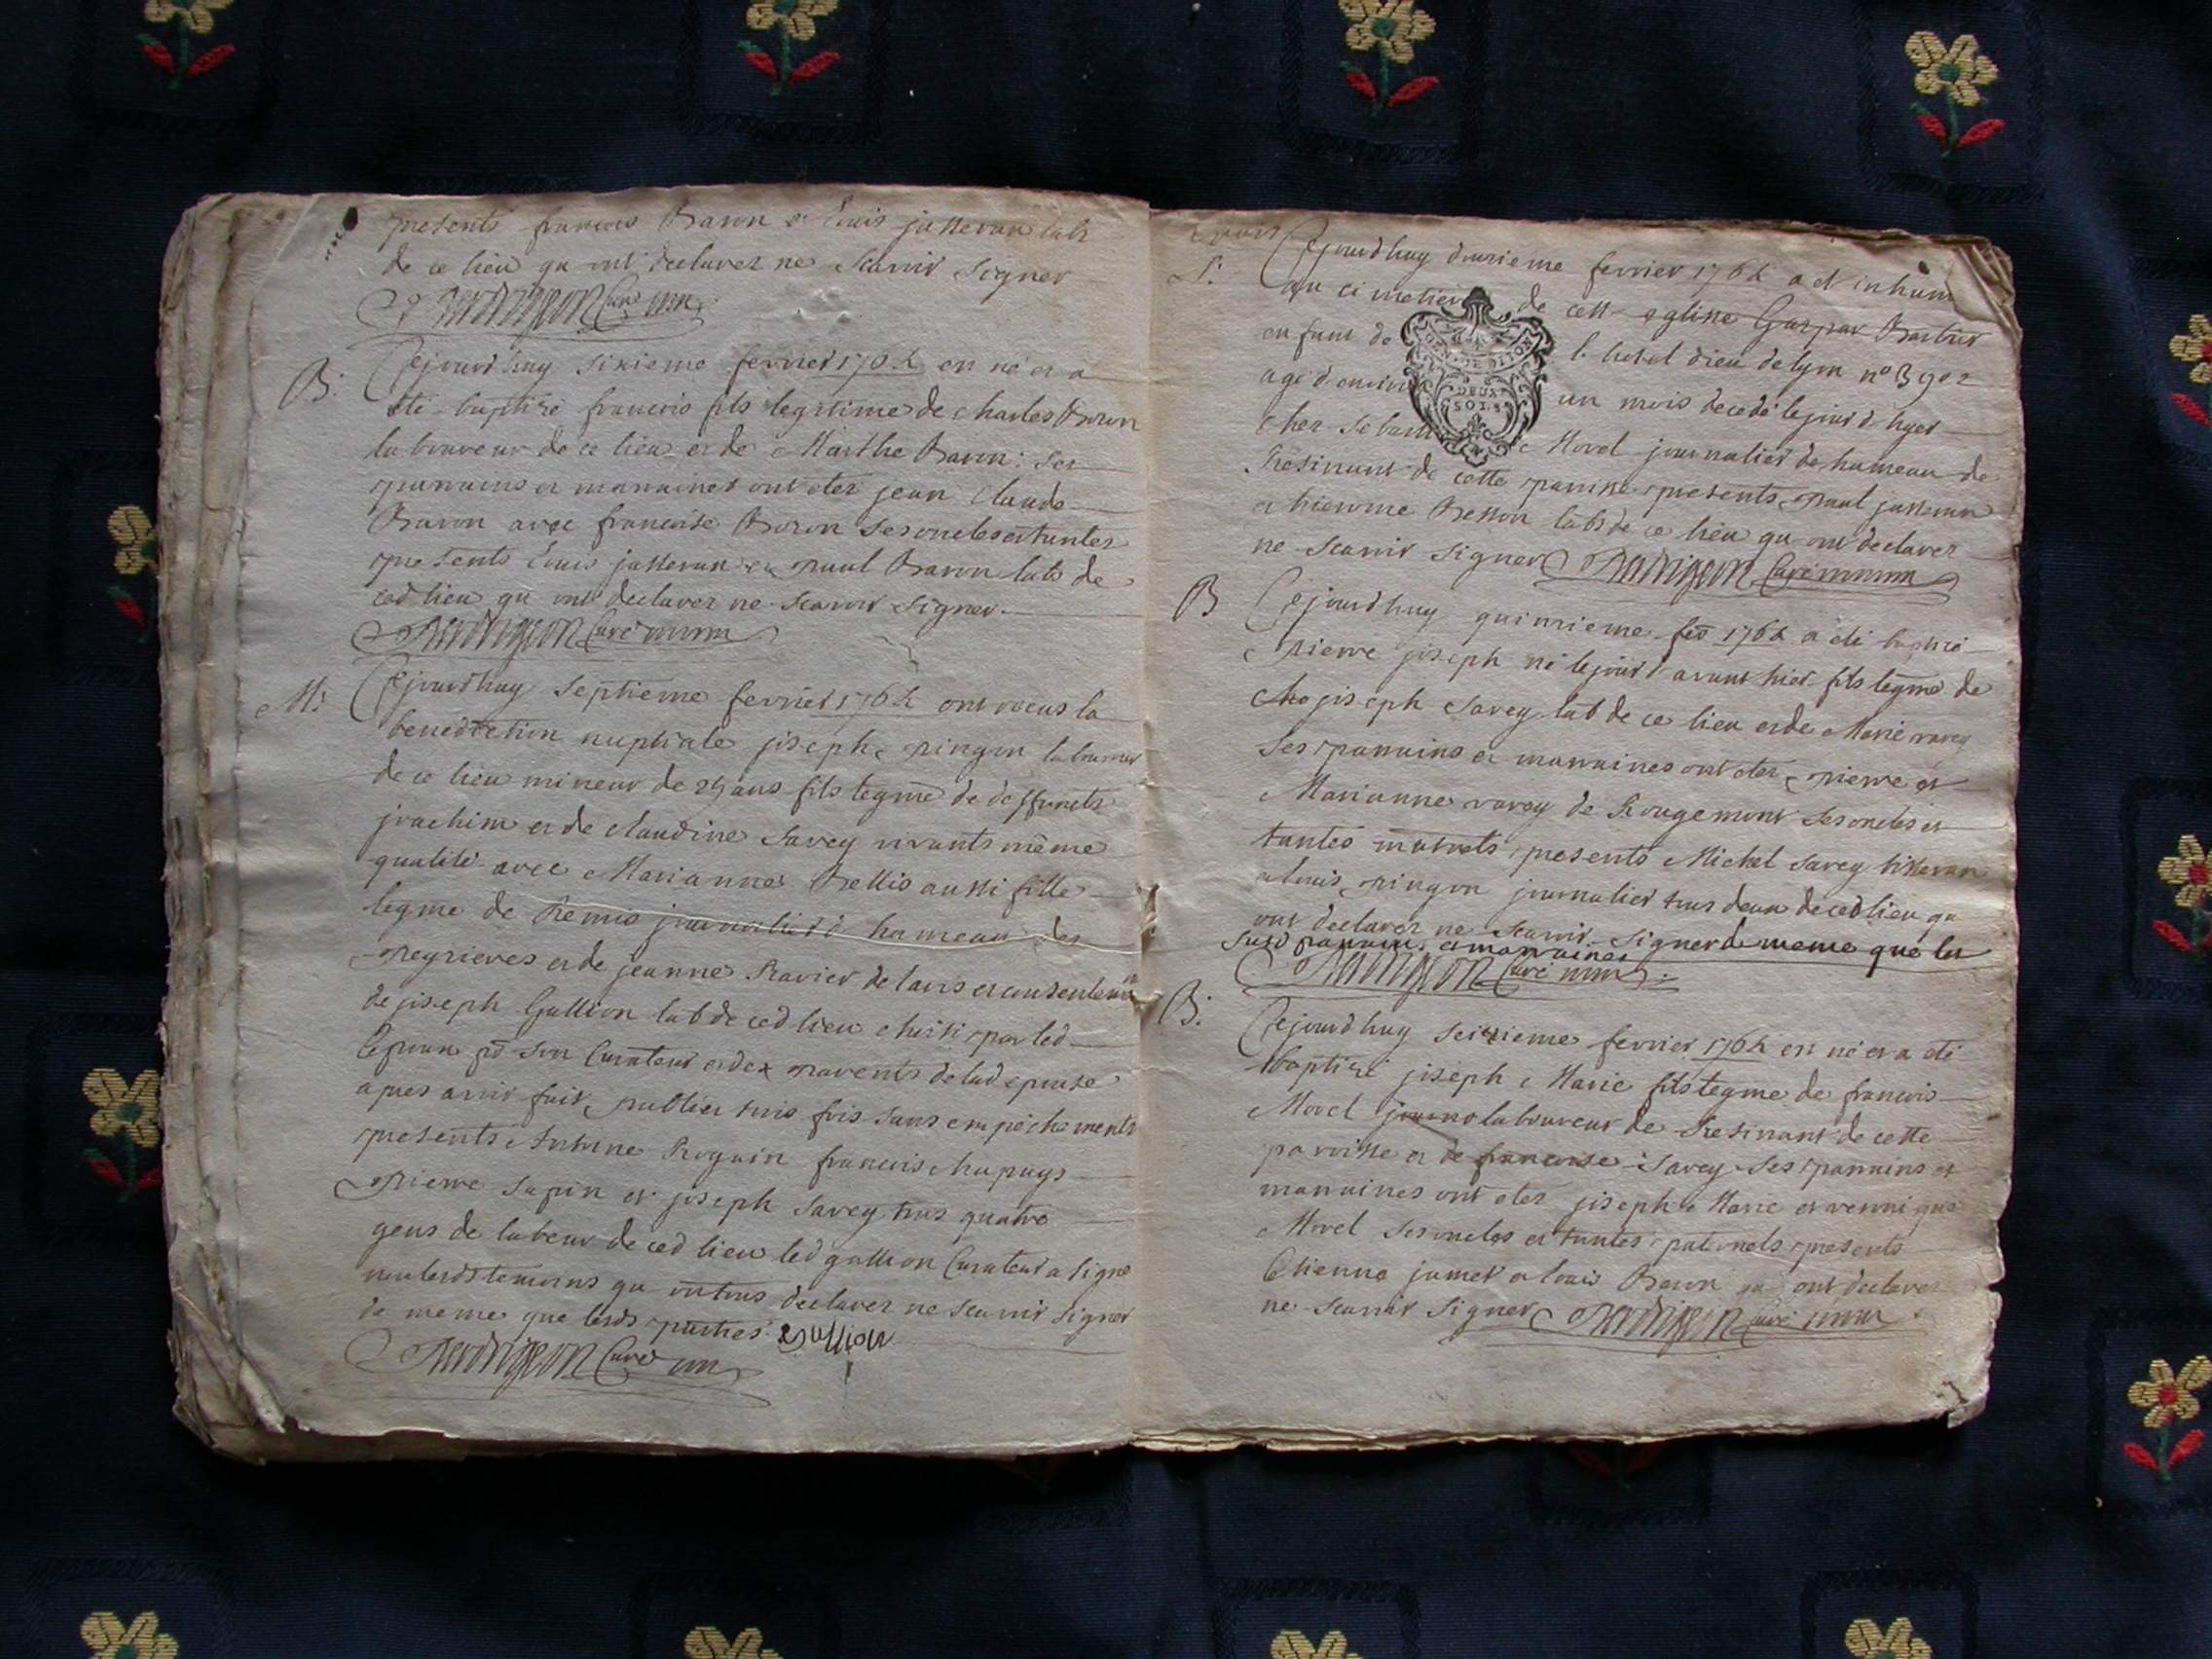 presents francois Baron et Louis jasseran labr
de ce lieu qu ont declarez ne scavoir signer
Perdrigeon Curé
B: Cejourdhuy sixieme fevrier 1762 est né et a
été baptisé francois fils legitime de charles Boron
laboureur de ce lieu et de Marthe Baron: ses
parrains et marraines ont etez jean Claude
Baron avec francoise Boron ses oncles et tantes
presents Louis jasseran et paul Baron labs de
ced lieu qu ont declarez ne scavoir signer.
Perdrigeon Curé
M: Cejourdhuy septieme fevrier 1762 ont recus la
benediction nuptiale joseph pingon laboureur
de ce lieu mineur de ans fils legme de deffuncts
joachim et de claudine Savey vivants même
qualité avec Marianne Bellis aussi fille
legme de Remis journalier d hameau des
peyrieres et de jeanne Ravier de lavis et consentement
de joseph Gullion lab de ced lieu choisi par led
Lepoux pd son Curateur et dex parents de lad epouse
apres avoir fait publier trois fois sans empêchements
presents Antoine Roguin francois chapuys
pierre Sapin et joseph Savey tous quatre
gens de labeur de ced lieu led gullion Curateur a signé
non lesds temoins qu ont tous declarez ne scavoir signer
de meme que lesds parties Gullion
Perdrigeon Curé
S: Cejourdhuy douzieme fevrier 1762 a et inhumé
au cimetiere de cett eglise Gaspar Barbier
enfant de l hotel dieu de lyon no 3902
agé d environ un mois decedé le jour d hyer
chez Morel journalier de hameau de
Resinant de cette parroisse presents paul jasseran
et hierome Besson labs de ce lieu qu ont declarez
ne scavoir signer Perdrigeon Curé
GEN. DE DIJON
DEUX
SOLS
B Cejourdhuy quinzieme fev 1762 a eté baptisé
pierre joseph né le jour d avant hier fils legme de
joseph Savey lab de ce lieu et de Marie varey
ses parrains et marraines ont etez pierre et
Marianne varey de Rougemont ses oncles et
tantes maternels presents Michel Savey tisseran
et louis pingon journalier tous deux de ced lieu qu
ont declarez ne scavoir signer de meme que les
susd parrains et marraines
Perdrigeon Curé
B: Cejourdhuy seizieme fevrier 1762 est né et a eté
baptisé joseph Marie fils legme de francois
Morel journa laboureur de Resinant de cette
parroisse et de francoise Savey ses parrains et
marraines ont etez joseph Marie et veronique
Morel ses oncles et tantes paternels presents
Etienne jumet et louis Baron qu ont declarez
ne scavoir signer Perdrigeon Curé